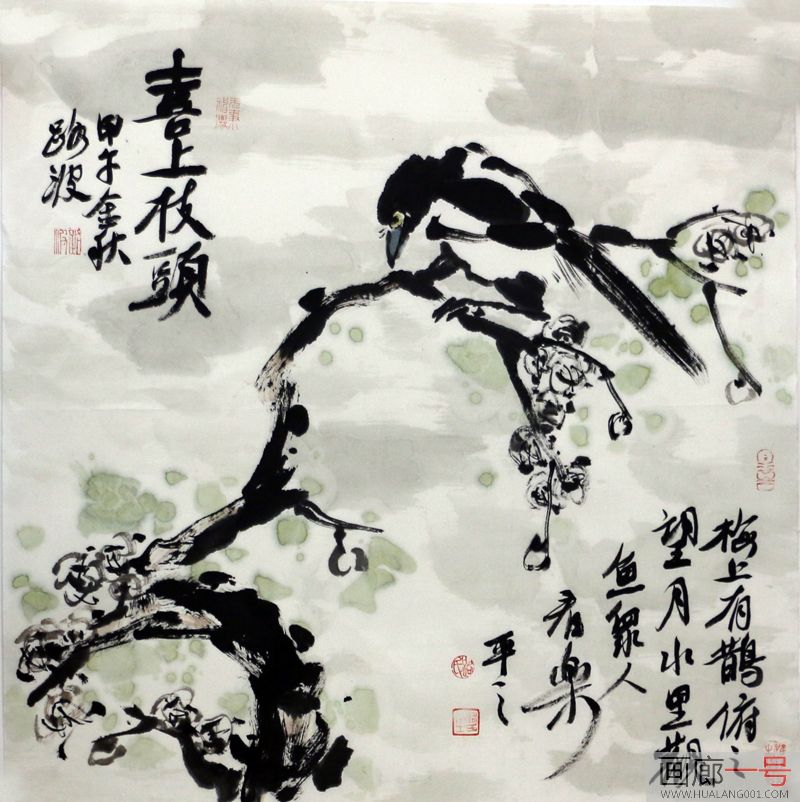 喜上枝頭
甲午金秋
路波
梅上有鵲俯之
望月水里
魚
人
有樂
平之
画廊一号
WWW.HUALANG001.COM